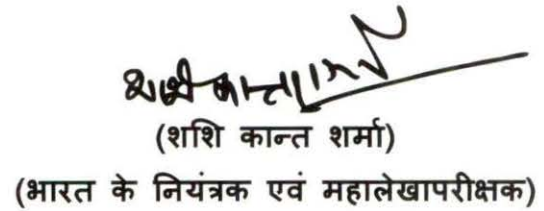 शशि कान्त शर्मा
(शशि कान्त शर्मा)
(भारत के नियंत्रक एवं महालेखापरीक्षक)